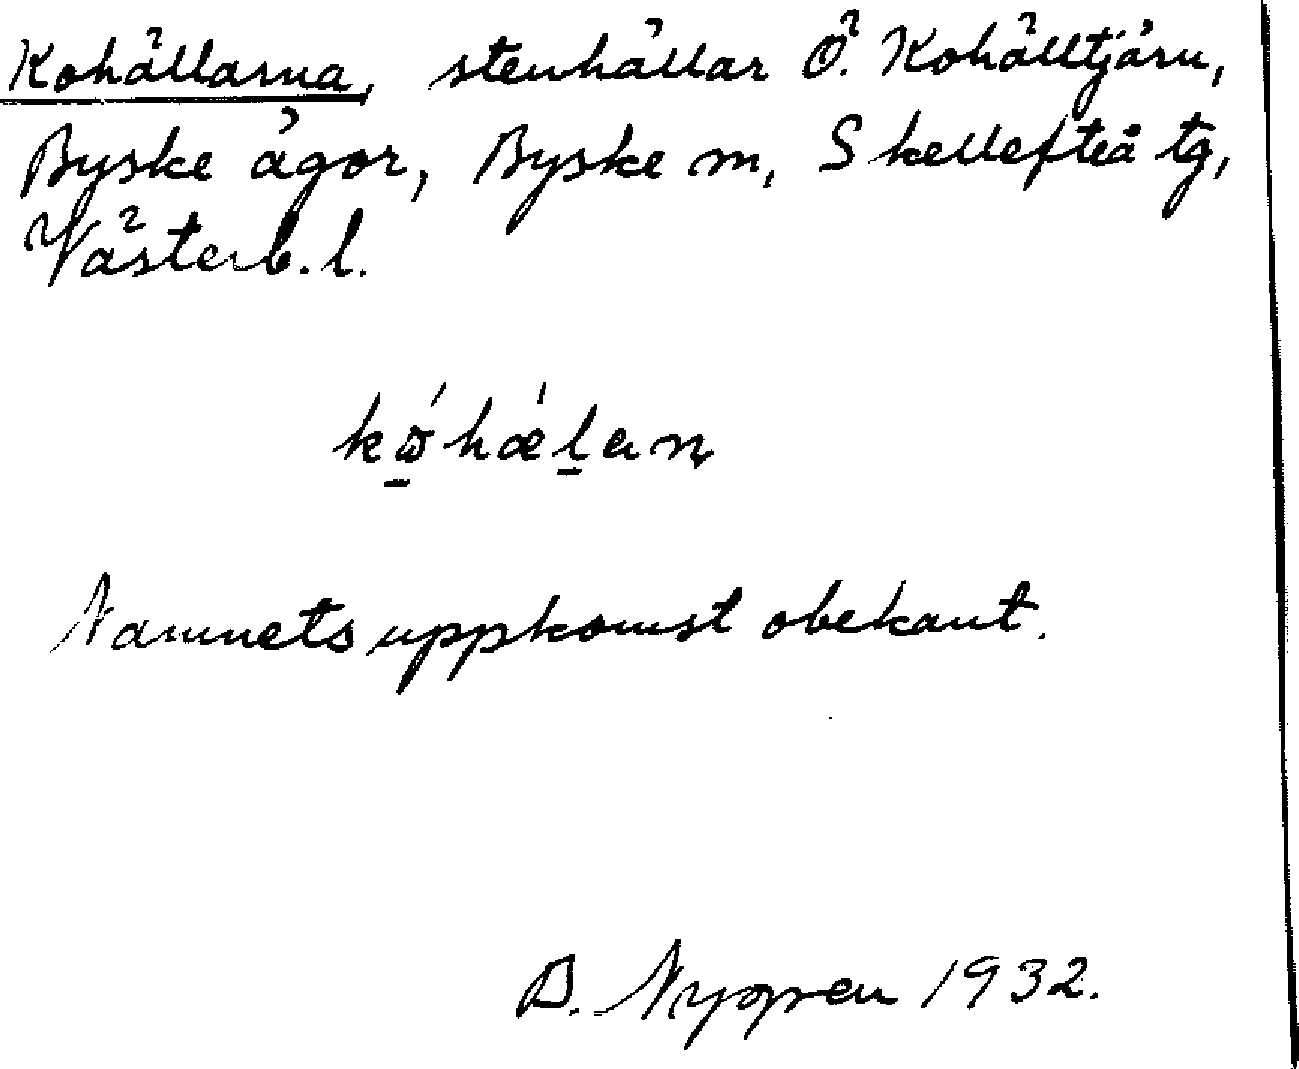 Kohällarna, stenhällar Ö. Kohälltjärn,
Byske ägor, Byske sn, Skellefteå tg,
Västerb. l.
Namnets uppkomst obekant.
B. Nygren 1932.